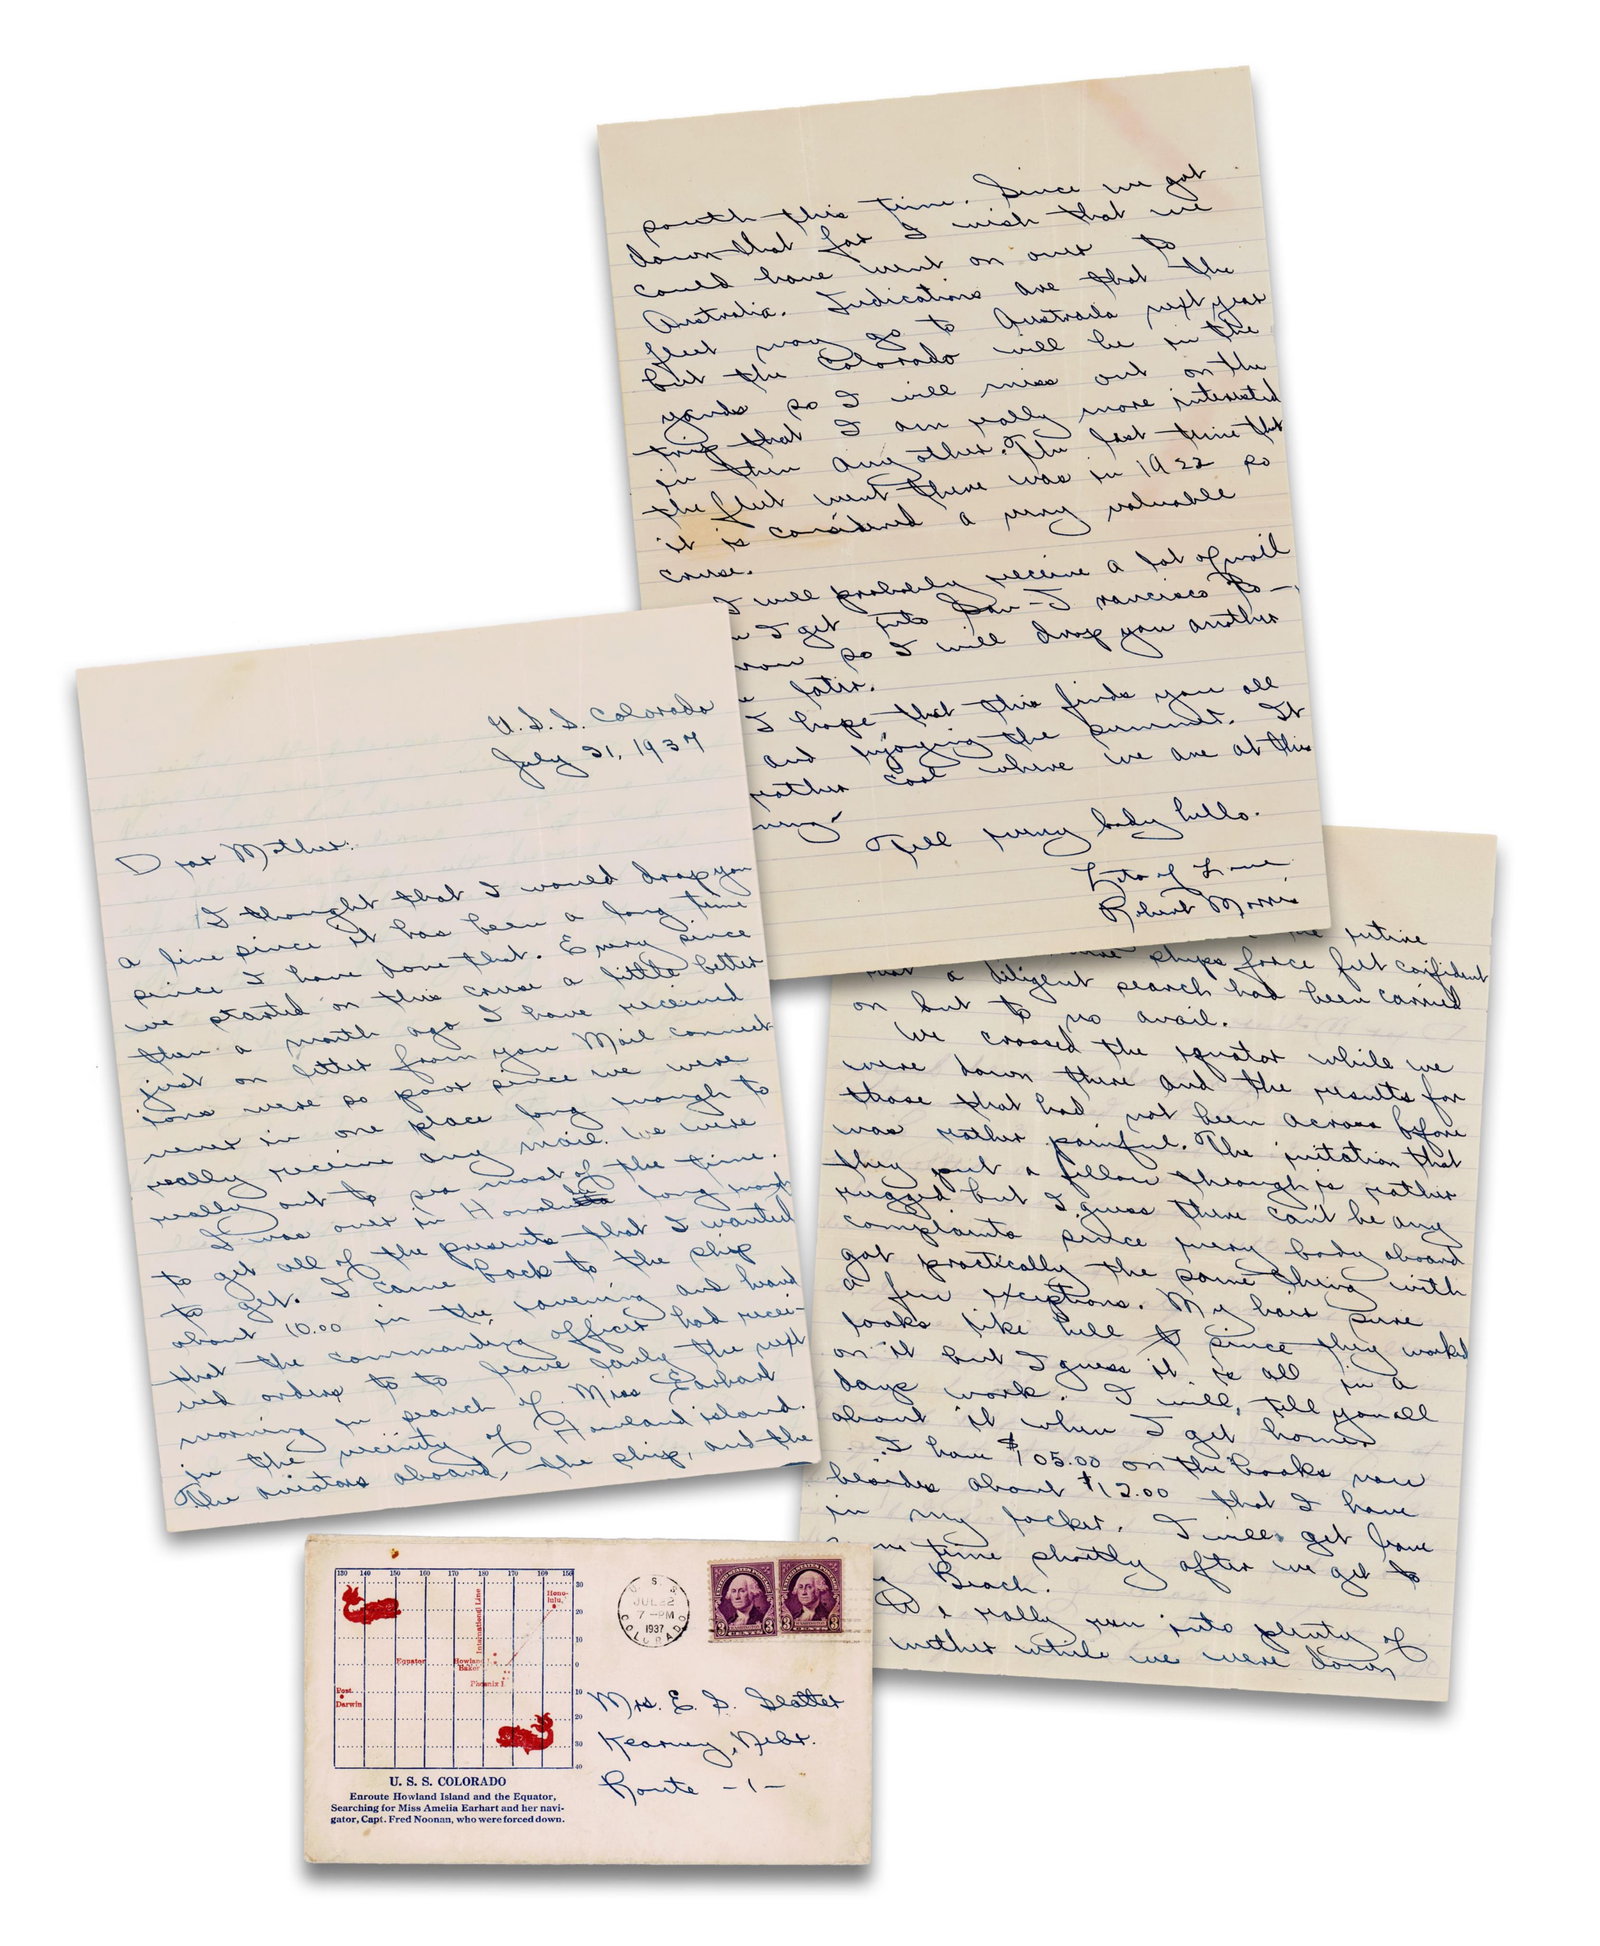 U.S.S. Colorado
July 21, 1937
Dear Mother:
I thought that I would drop you
a line since it has been a long time
since I have done that. Every since
we started on this cruse a little better
then a month ago I have received
just on letter from you Mail connect-
ions were so poor since we were
never in one place long enough to
really receive any mail. We were
really out to sea most of the time.
I was over in Honolulu long enough
to get all of the presents that I wanted
to get. I came back to the ship
about 10.00 in the evening and heard
that the commanding officer had recei-
ved orders to to leave early the next
morning in search of Miss Earhart
in the vicinity of Howland island.
The aviators aboard, the ship, and the
the entire
ships force felt confident
that a diligent search had been carried
on but to no avail.
We crossed the equator while we
were down there and the results for
those that had not been across before
was rather painful. The initation that
they put a fellow through is rather
rugged but I guess there can't be any
complaints since every body aboard
got practically the same thing with
a few exceptions. My hair sure
looks like hell since they worked
on it but I guess it is all in a
days work. I will, tell you all
about it when I get home
I have $105.00 on the books now
besides about $12.00 that I have
in my locker. I will get leave
some time shortly after we get to
Beach.
We really run into plenty of
wether while we were down
south this time. Since we got
down that far I wish that we
could have went on over to
Australia. Indications are that the
fleet may go to Australia next year
but the Colorado will be in the
yards so I will miss out on the
trip that I am really more interested
in then any other. The last time that
the fleet went there was in 1922 so
it is considered a very valuable
cruse.
I will probably receive a lot of mail
I get into San-Francisco to-
so I will drop you another
later.
I hope that this finds you all
and enjoying the summer. It
rather cool where we are at this
Tell every body hello.
Lots of Love
Robert Morris
130 140 150 160 170 180 170 160 150
30
20
10
0
10
20
30
40
International Line
Hono-
lulu,
Equator
Howland
Baker
Phoenix I.
Port
Darwin
U. S. S. COLORADO
Enroute Howland Island and the Equator,
Searching for Miss Amelia Earhart and her navi-
gator, Capt. Fred Noonan, who were forced down.
U. S. S.
JUL 22
7 -PM
1937
COLORADO
UNITED STATES POSTAGE
3 CENTS 3
UNITED STATES POSTAGE
3 CENTS 3
Mrs. E. S. Slatter
Kearney, Nebr.
Route -1-